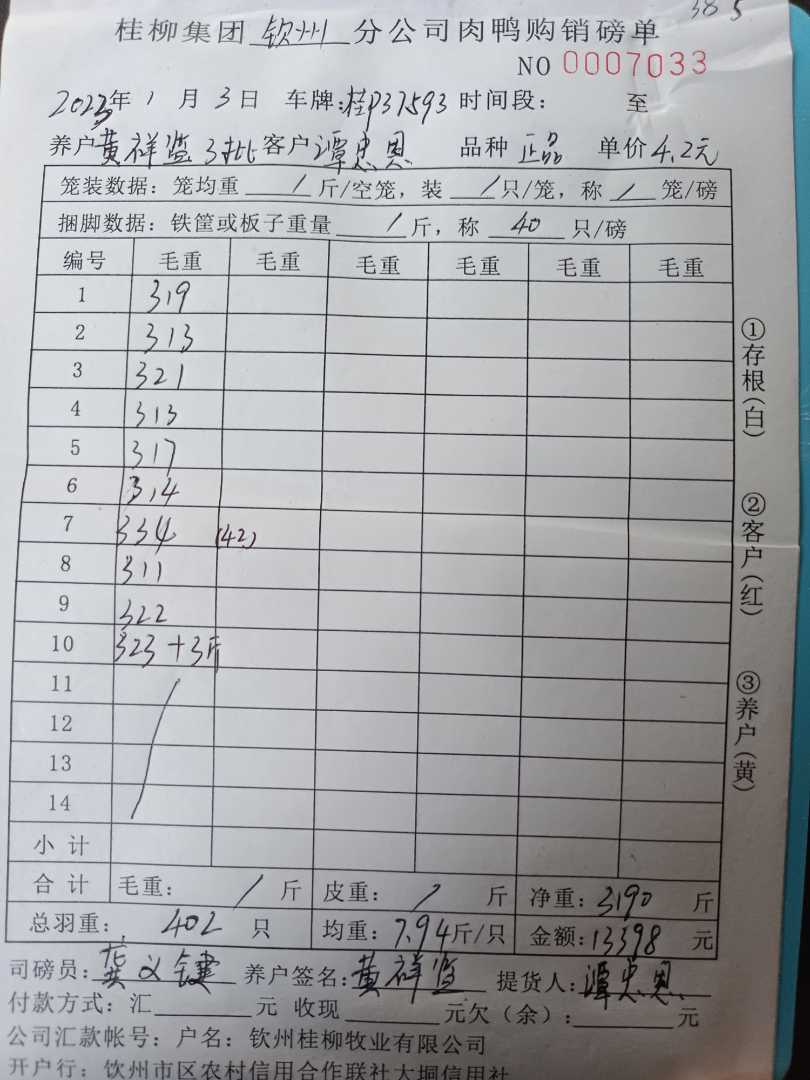 385
桂柳集团 钦州 分公司肉鸭购销磅单
NO 0007033
2023年 1 月 3 日 车牌:桂P37593 时间段: 至
养户黄祥监 3批 客户谭忠恩 品种 正品 单价4.2元
笼装数据: 笼均重 / 斤/空笼, 装 / 只/笼, 称 / 笼/磅
捆脚数据: 铁筐或板子重量 / 斤, 称 40 只/磅
编号 毛重 毛重 毛重 毛重 毛重 毛重
1 319
2 313
3 321
4 313
5 317
6 314
7 334 (42)
8 311
9 322
10 323+3斤
11
12
13
14
小 计
合 计 毛重: / 斤 皮重: / 斤 净重: 3190 斤
总羽重: 402 只 均重: 7.94斤/只 金额: 13398 元
司磅员: 龚义键 养户签名: 黄祥监 提货人: 谭忠恩
付款方式: 汇 元 收现 元欠(余): 元
公司汇款帐号: 户名: 钦州桂柳牧业有限公司
开户行: 钦州市区农村信用合作联社大垌信用社
①存根(白)
②客户(红)
③养户(黄)